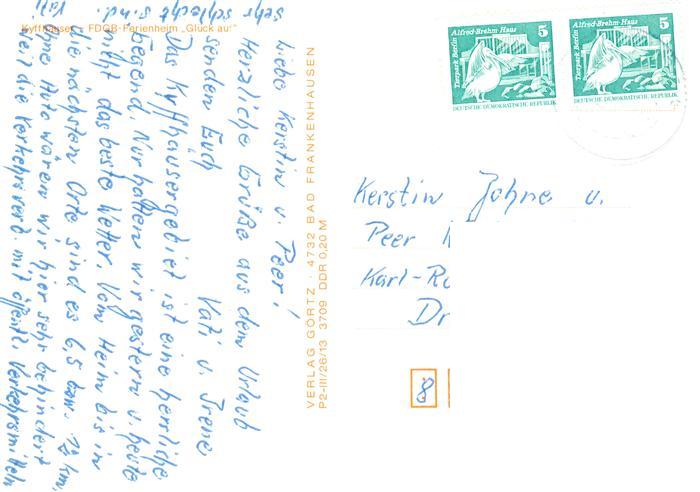 Kyffhäuser - FDGB-Ferienheim „Glück auf"
Liebe Kerstin u. Peer!
Herzliche Grüße aus dem Urlaub
senden Euch
Kati u. Irene
Das Kyffhäusergebiet ist eine herrliche
Gegend. Nur hatten wir gestern u. heute
nicht das beste Wetter. Vom Heim bis in
die nächsten Orte sind es 6,5 bzw. 12 km.
Ohne Auto wären wir hier sehr behindert
weil die Verkehrsverb. mit öffentl. Verkehrsmitteln
sehr schlecht sind.
VERLAG GÖRTZ · 4732 BAD FRANKENHAUSEN
P2-III/26/13 3709 DDR 0,20 M
Alfred-Brehm-Haus
5
Tierpark Berlin
DEUTSCHE DEMOKRATISCHE REPUBLIK
Alfred-Brehm-Haus
5
Tierpark Berlin
DEUTSCHE DEMOKRATISCHE REPUBLIK
Kerstin Johne u.
Peer
Karl-
Dr
8